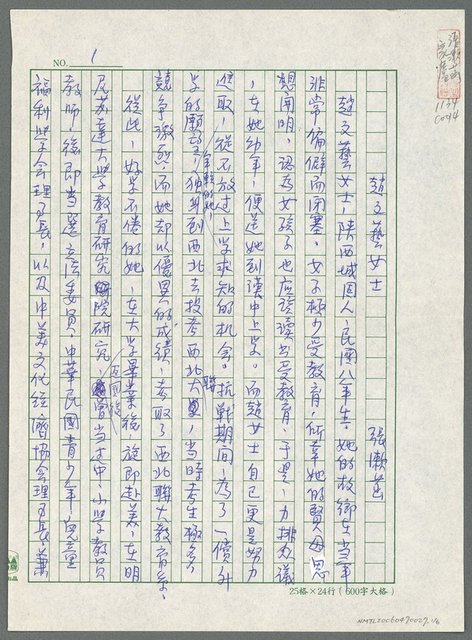 NO. 1
1134
趙文藝女士　張漱菡
趙文藝女士，陝西城固人，民國八年生，她的故鄉在當年
非常偏僻而閉塞，女子極少受教育，所幸她的賢母思
想開明，認為女孩子也應該讀書受教育，于是，力排眾議
，在她幼年，便送她到漢中上學。而趙女士自己更是努力
進取，從不放過上學求知的机会。抗戰期間，為了一償升
學的願望，隻身到西北去投考西北聯大，當時考生極多，
競爭激烈，而她却以優異的成績，考取了西北聯大教育系。
從此，好學不倦的她，在大學畢業後，旋即赴美，在明
尼蘇達大學教育研究院研究，返國後，曾當过中、小學教員
教師，後即當選立法委員，中華民國青少年兒童
福利學会理事長，以及中美文化經濟協会理事長兼
25格×24行（600字大格）